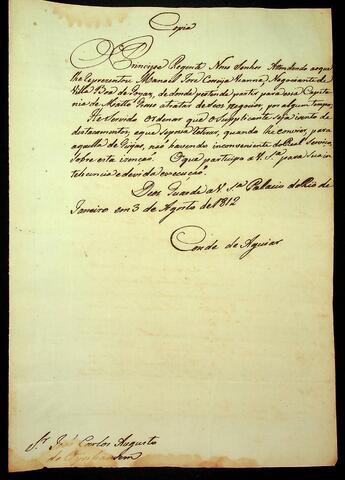 Copia
O Principe Regente Nosso Senhor Attendendo ao que
lhe Representou Manoel José Correia Vianna, Negociante de
Villa Boa de Goyaz, de donde pertende partir para essa Capita-
nia de Matto Grosso a tratar de seus negocios, por algum tempo;
He servido Ordenar que o Supplicante seja isento de
destacamentos, e que se possa retirar, quando lhe convier, para
aquella de Goyaz, não havendo inconveniente do Real Serviço,
sobre esta izenção. O que participo a V. Sa. para sua in-
teligencia e devida execução.
Deos Guarde a V. Sa. Palacio do Rio de
Janeiro em 3 de Agosto de 1812
Conde de Aguiar
Sr. João Carlos Augusto
de Oyenhausen